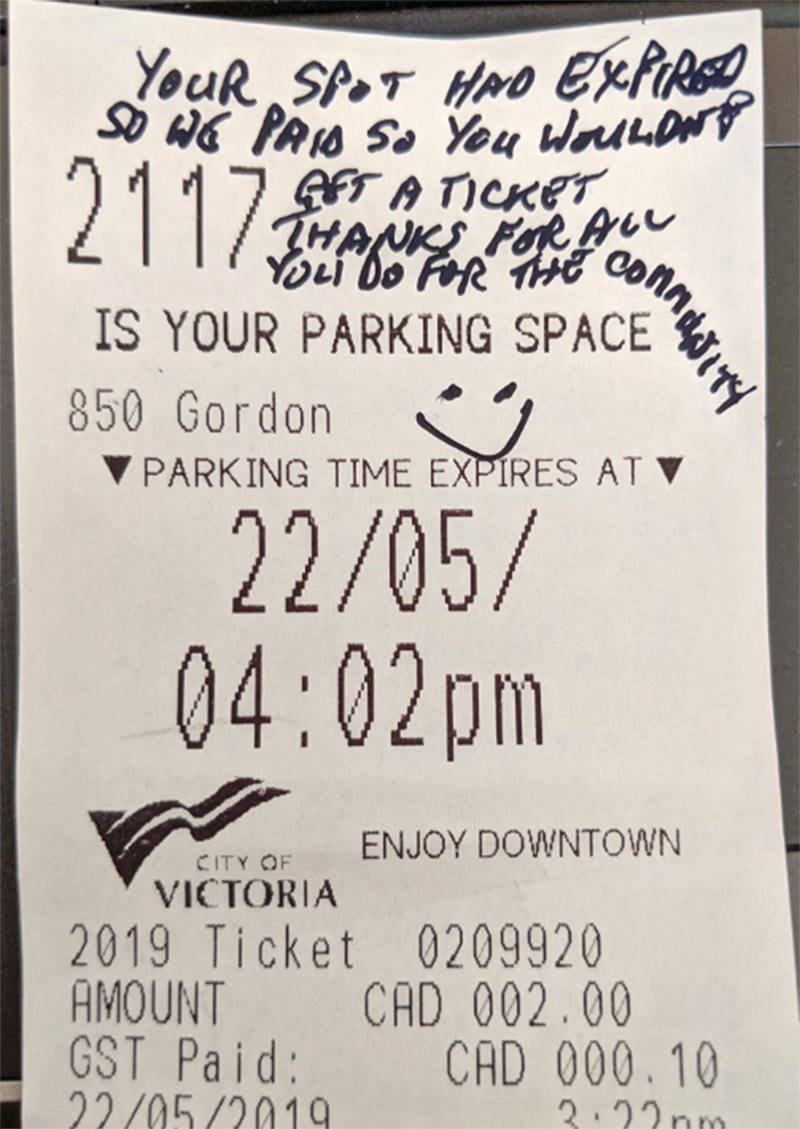 YOUR SPOT HAD EXPIRED
SO WE PAID SO YOU WOULDNT
GET A TICKET
THANKS FOR ALL
YOU DO FOR THE COMMUNITY
2117
IS YOUR PARKING SPACE
850 Gordon
▼ PARKING TIME EXPIRES AT ▼
22/05/
04:02pm
CITY OF
VICTORIA
ENJOY DOWNTOWN
2019 Ticket 0209920
AMOUNT CAD 002.00
GST Paid: CAD 000.10
22/05/2019 3:22pm